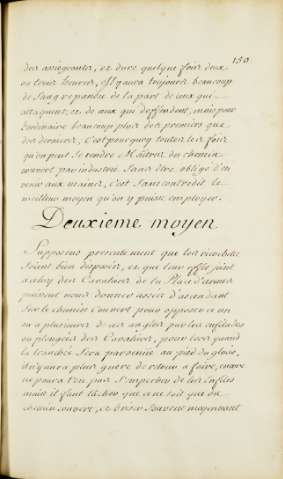 150
des assiegeants, et dure quelque fois deux
ou trois heures, Il y aura toujours beaucoup
de Sang repandu de la part de ceux qui
attaquent, et de ceux qui deffendent, mais pour
l'ordinaire beaucoup plus des premiers que
des derniers, C'est pourquoy toutes les fois
qu'on peut se rendre Maitres du chemin
couvert par industrie Sans être obligé d'en
venir aux mains, c'est Sans contredit le
meilleur moyen qu'on y puisse employer.
Deuxieme moyen
Supposons presentement que les ricochets
Soient bien disposés, et que leur effet joint
a celuy des Cavaliers de la Place d'armes
puissent nous donner assés d'ascendant
Sur le chemin Couvert pour opposer
a plusieurs de ces angles par les enfilades
ou plongées des Cavaliers, pour lors quand
la tranchée Sera parvenüe au pied du glacis,
Il n'y aura plus guere de retour a faire,
ne pourra
mais il faut tâcher que ce ne soit que du
chemin couvert, et bien moyennant